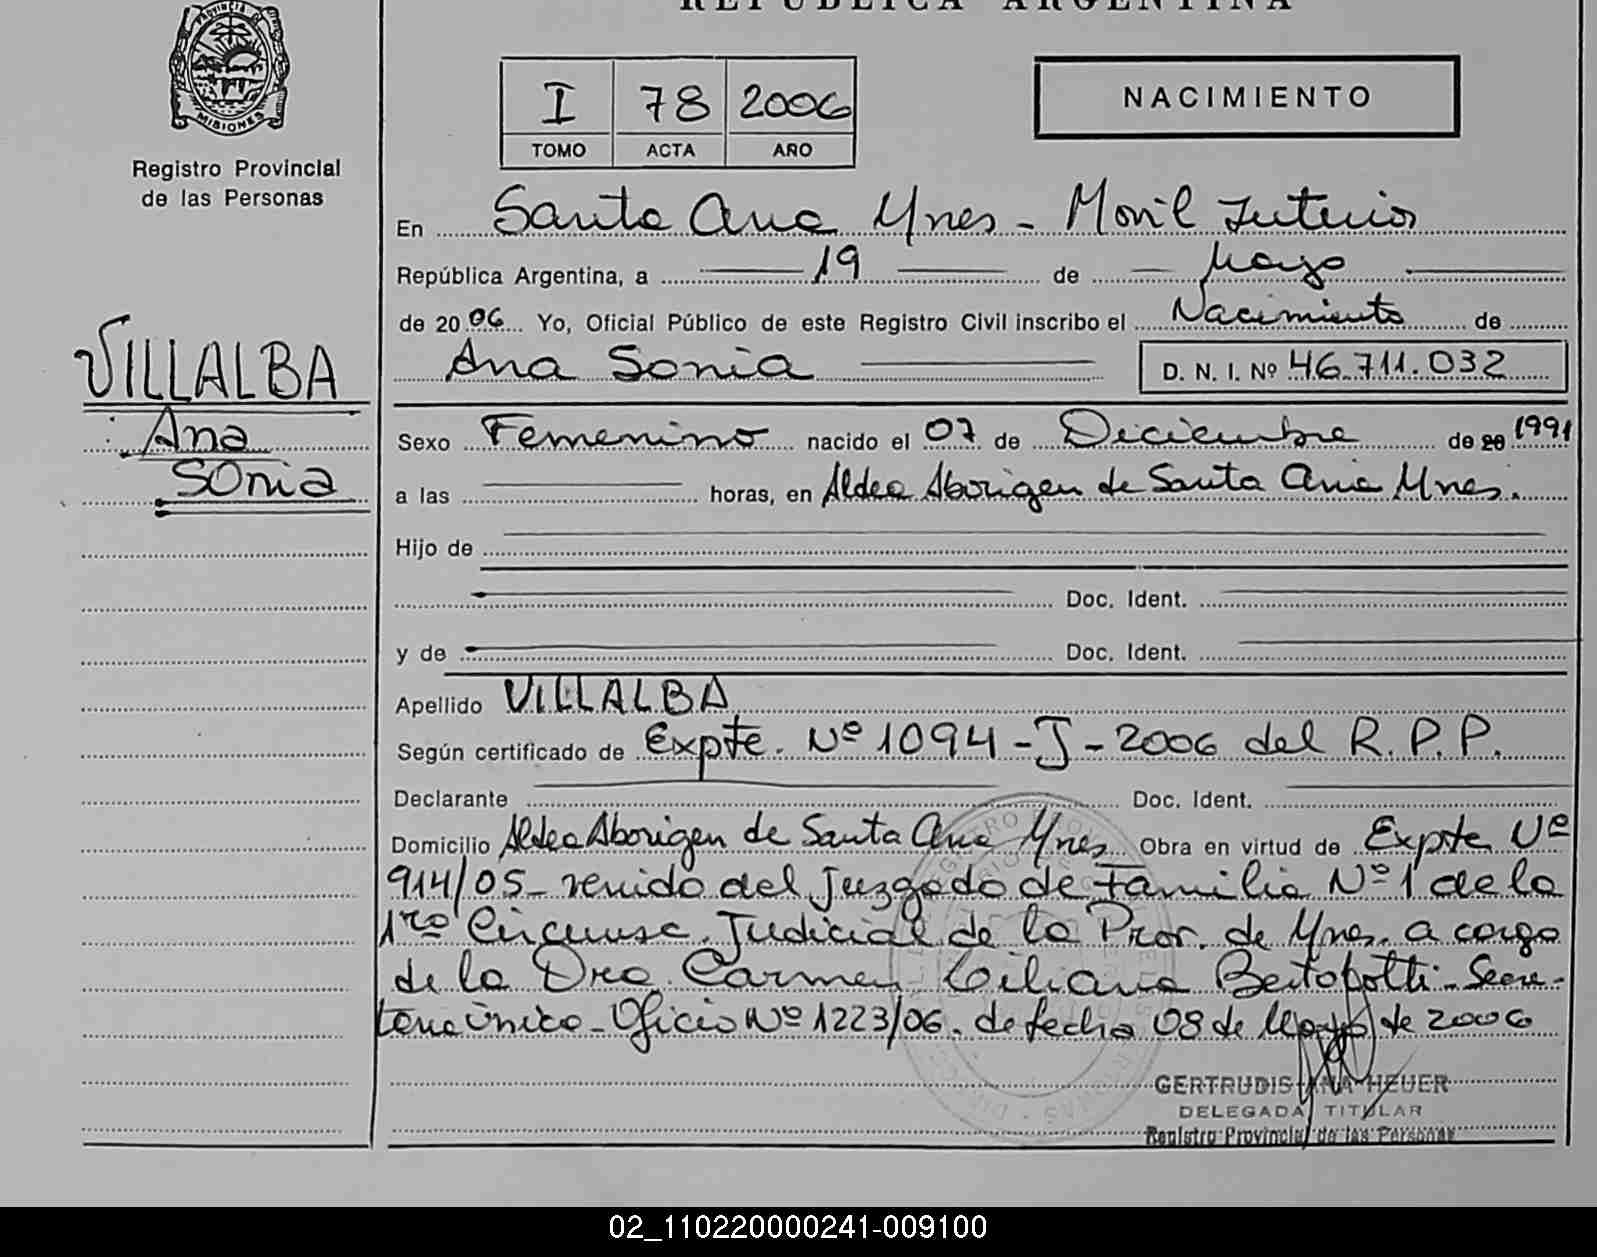 REPUBLICA ARGENTINA
PROVINCIA DE
MISIONES
Registro Provincial
de las Personas
I 78 2006
TOMO ACTA AÑO
NACIMIENTO
En Santa Ana Mnes - Movil Interior
República Argentina, a 19 de Mayo
de 2006 Yo, Oficial Público de este Registro Civil inscribo el Nacimiento de
Ana Sonia D. N. I. Nº 46.711.032
VILLALBA
Ana
Sonia
Sexo Femenino nacido el 07 de Diciembre de 20 1991
a las horas, en Aldea Aborigen de Santa Ana Mnes.
Hijo de
Doc. Ident.
y de Doc. Ident.
Apellido VILLALBA
Según certificado de Expte. Nº 1094-J-2006 del R.P.P.
Declarante Doc. Ident.
Domicilio Aldea Aborigen de Santa Ana Mnes Obra en virtud de Expte Nº
914/05 - venido del Juzgado de Familia Nº 1 de la
1ra Circunsc. Judicial de la Prov. de Mnes. a cargo
de la Dra. Carmen Liliana Bertolotti - Secre-
taria única - Oficio Nº 1223/06. de fecha 08 de Mayo de 2006
GERTRUDIS ANA HEUER
DELEGADA TITULAR
Registro Provincial de las Personas
02_110220000241-009100